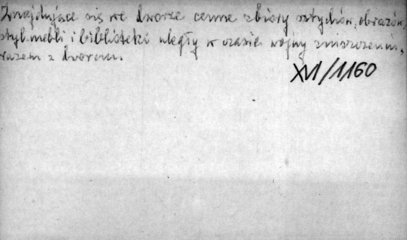 Znajdujące się we dworze cenne zbiory sztychów, obrazów,
styl. mebli i biblioteki uległy w czasie wojny zniszczeniu,
razem z dworem.
XVI/1160